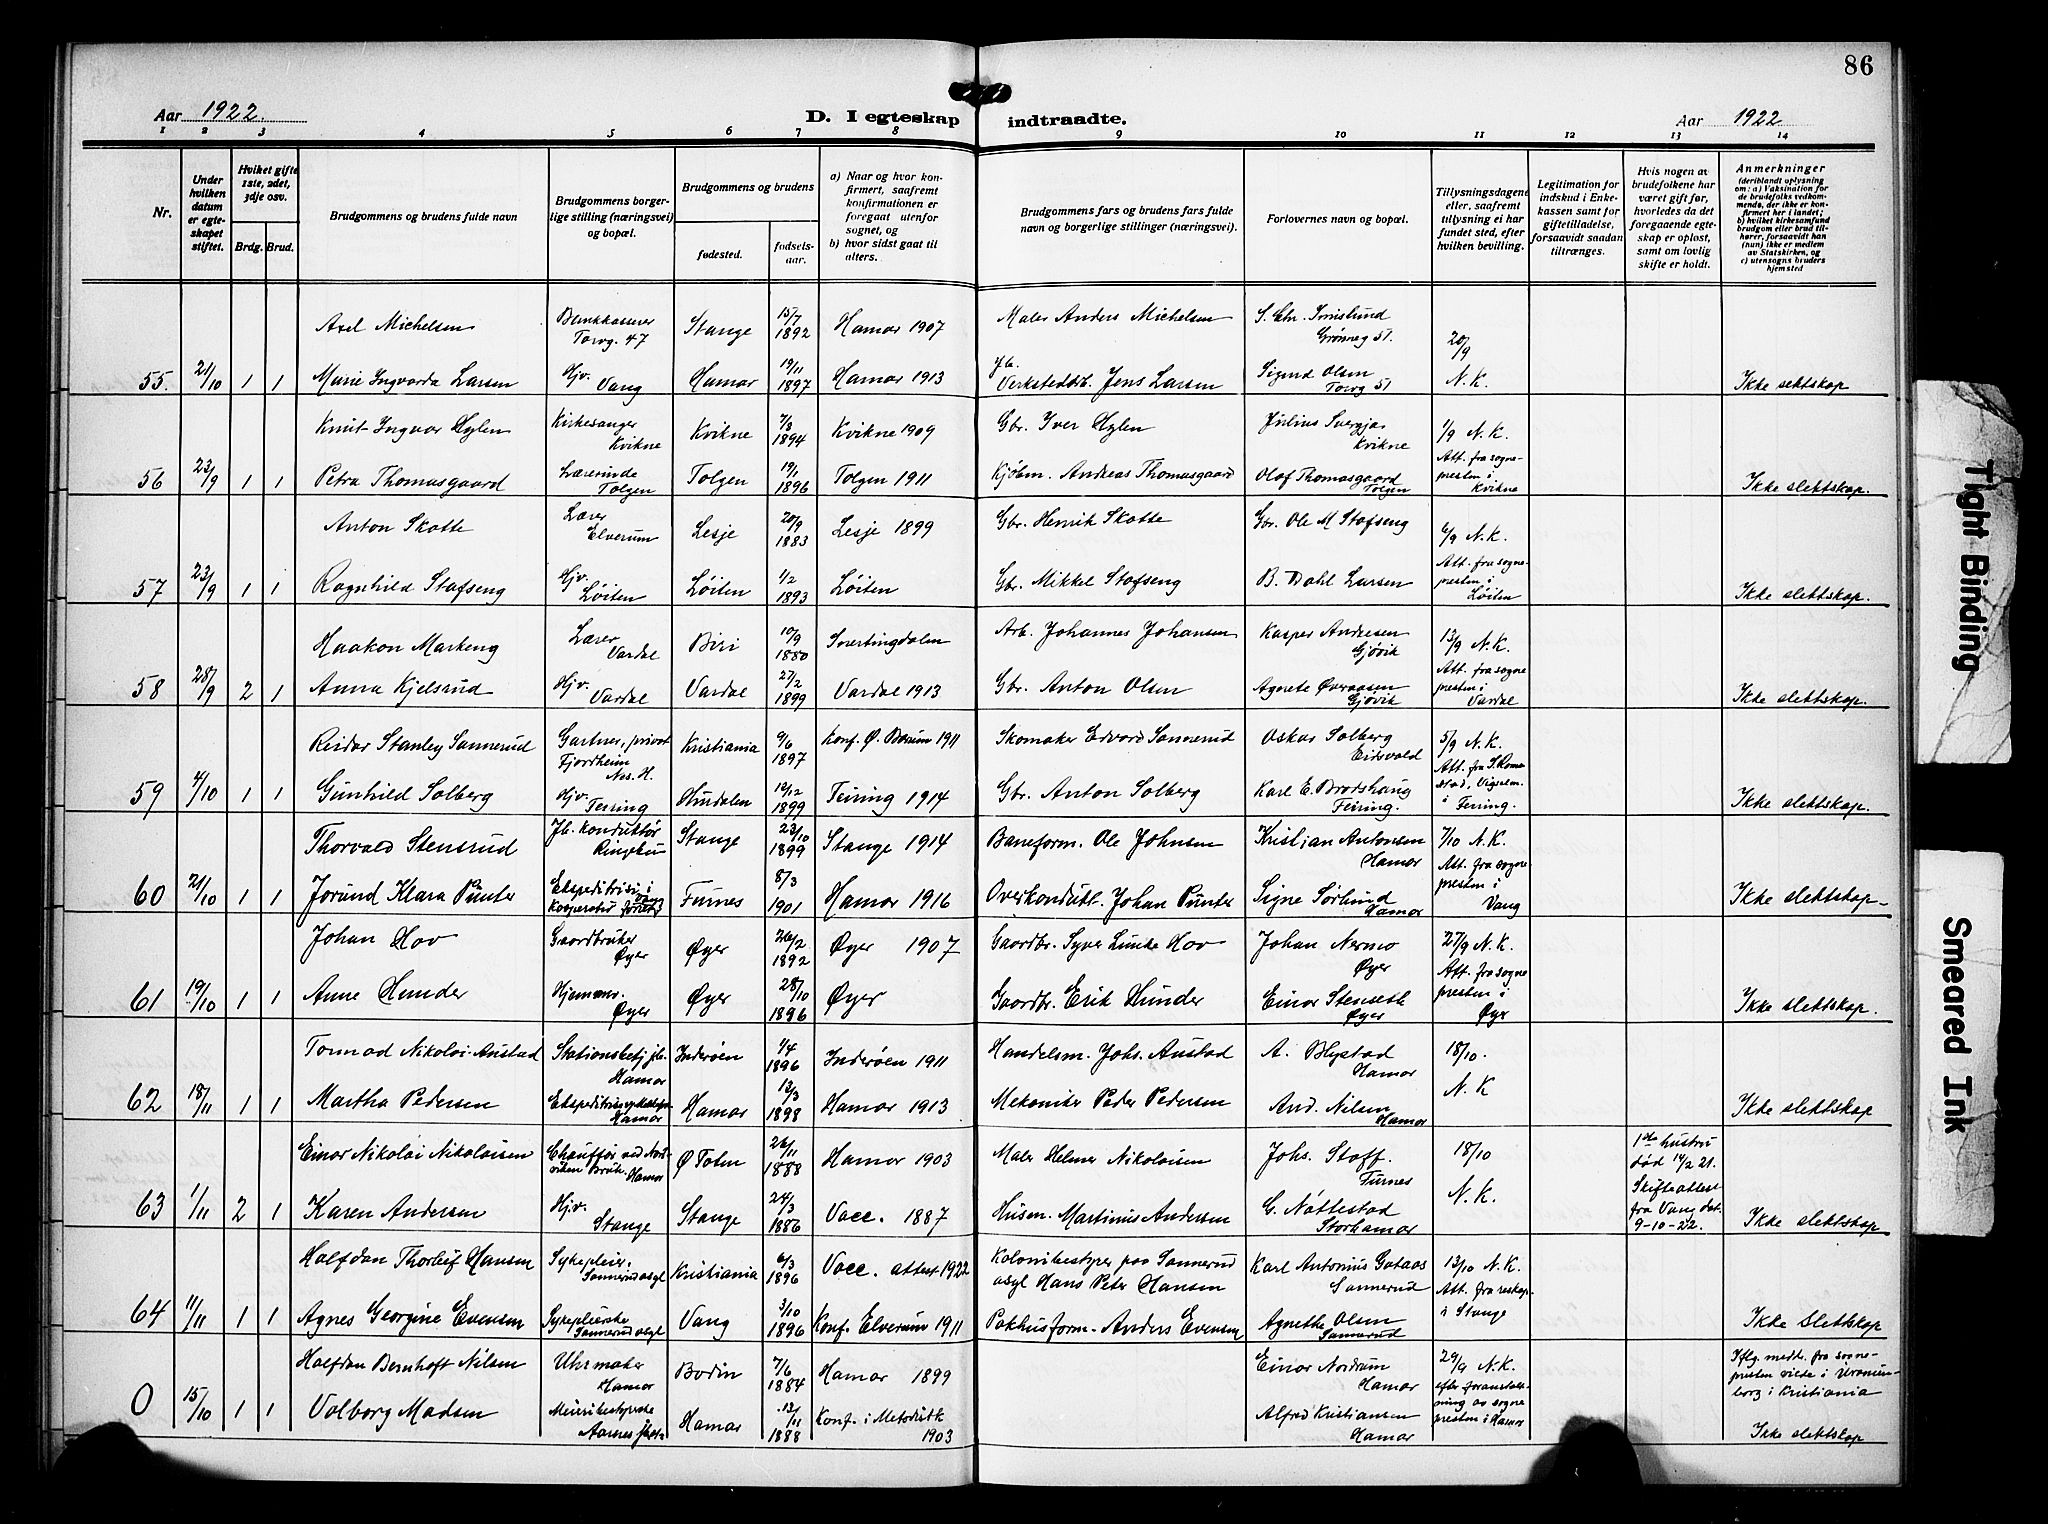 86
Aar 1922.
D. I egteskap indtraadte.
Aar 1922
1 2 3 4 5 6 7 8 9 10 11 12 13 14
Nr.
Under hvilken datum er egteskapet stiftet.
Hvilket gifte 1ste, 2det, 3dje osv.
Brdg. Brud.
Brudgommens og brudens fulde navn
Brudgommens borgerlige stilling (næringsvei) og bopæl.
Brudgommens og brudens
fødested.
fødselsaar.
a) Naar og hvor konfirmert, saafremt konfirmationen er foregaat utenfor sognet, og
b) hvor sidst gaat til alters.
Brudgommens fars og brudens fars fulde navn og borgerlige stillinger (næringsvei).
Forlovernes navn og bopæl.
Tillysningsdagene eller, saafremt tillysning ei har fundet sted, efter hvilken bevilling.
Legitimation for indskud i Enkekassen samt for giftetilladelse, forsaavidt saadan tiltrænges.
Hvis nogen av brudefolkene har været gift før, hvorledes da det foregaaende egteskap er opløst, samt om lovlig skifte er holdt.
Anmerkninger
(deriblandt oplysning om: a) Vaksination for de brudefolks vedkommende, der ikke er konfirmert her i landet; b) hvilket kirkesamfund brudgom eller brud tilhører, forsaavidt han (hun) ikke er medlem av Statskirken, og c) utensogns bruders hjemsted
Axel Michelsen Bankkasserer Torvg. 47 Stange 15/7 1892 Hamar 1907 Maler Anders Michelsen S. Chr. Grønneg 51. 20/9
55. 21/10 1 1 Marie Ingvarda Larsen Hjv. Vang Hamar 19/11 1897 Hamar 1913 Jens Larsen Sigurd Olsen Torvg 51 N.K. Ikke slektskap
Knut Ingvar Hylen Kirkesanger Kvikne Kvikne 7/3 1894 Kvikne 1909 Gbr. Iver Hylen Julius Kvikne 1/9 N.K.
56 23/9 1 1 Petra Thomasgaard Lærerinde Tolgen Tolgen 19/1 1896 Tolgen 1911 Kjøbm. Andreas Thomasgaard Olaf Thomasgaard Tolgen Att. fra sognepresten i Kvikne Ikke slektskap.
Anton Skotte Lærer Elverum Lesje 20/9 1883 Lesje 1899 Gbr. Henrik Skotte Gbr. Ole M Stafseng 6/9 N.K.
57 23/9 1 1 Ragnhild Stafseng Hjv. Løiten Løiten 1/2 1893 Løiten Gbr. Mikkel Stafseng B. Dahl Larsen Att. fra sognepresten i Løiten Ikke slektskap.
Haakon Markeng Lærer Vardal Biri 10/9 1880 Snertingdalen Arb. Johannes Johansen Kasper Andresen Gjøvik 13/9 N.K.
58 28/9 2 1 Anna Kjelsrud Hjv. Vardal Vardal 27/2 1899 Vardal 1913 Gbr. Anton Olsen Agnete Gjøvik Att. fra sognepresten i Vardal Ikke slektskap.
Reidar Stanley Sannerud Gartner, privat Fjordheim Nes. H. Kristiania 9/6 1897 Konf. Ø. Bærum 1911 Skomaker Edvard Sannerud Oskar Solberg Eidsvold 5/9 N.K.
59 4/10 1 1 Gunhild Solberg Hjv. Feiring Hurdalen 12/12 1899 Feiring 1914 Gbr. Anton Solberg Karl E. Brodshaug Feiring. Att. fra i Feiring. Ikke slektskap.
Thorvald Stensrud Jb. konduktør Ringsbu Stange 23/10 1899 Stange 1914 Baneform. Ole Johnsen Kristian Antonsen Hamar 7/10 N.K.
60 21/10 1 1 Jorund Klara Punter Ekspeditrise i Furnes 8/3 1901 Hamar 1916 Overkondukt. Johan Punter Signe Sørlund Hamar Att. fra sognepresten i Vang Ikke slektskap.
Johan Hov Gaardbruker Øyer Øyer 26/2 1892 Øyer 1907 Gaardbr. Syver Lunke Hov Johan Nermo Øyer 27/9 N.K.
61 19/10 1 1 Anne Hunder Hjemmev. Øyer Øyer 28/10 1896 Øyer Gaardbr. Erik Hunder Einar Stenseth Øyer Att. fra sognepresten i Øyer Ikke slektskap.
Tormod Nikolai Austad Stationsbetj. jb. Hamar Inderøen 1/4 1896 Inderøen 1911 Handelsm. Johs. Austad A. Blystad Hamar 18/10.
62 18/11 1 1 Martha Pedersen Hamar Hamar 13/3 1898 Hamar 1913 Mekaniker Peder Pedersen And. Nilsen Hamar N.K Ikke slektskap
Einar Nikolai Nikolaisen Chauffør ved Hamar Ø Toten 26/11 1888 Hamar 1903 Maler Helmer Nikolaisen Johs. Staff. Furnes 18/10 1ste hustru død 14/2 21.
63 1/11 2 1 Karen Andersen Hjv. Stange Stange 24/3 1886 Vacc. 1887 Husm. Martinus Andersen G. Nøttestad Storhamar N.K. Skifteattest fra Vang dat. 9-10-22. Ikke slektskap
Halfdan Thorleif Hansen Sykepleier. Sannerud asyl Kristiania 6/3 1896 Vacc. attest 1922 Kolonibestyrer paa Sannerud asyl Hans Peter Hansen Karl Antonius Gataas Sannerud 13/10 N.K.
64 11/11 1 1 Agnes Georgine Evensen Sykepleierske Sannerud asyl Vang 3/10 1896 Konf. Elverum 1911 Pakhusform. Anders Evensen Agnethe Olsen Sannerud Att. fra reskap. i Stange Ikke Slektskap
Halfdan Bernhoft Nilsen Uhrmaker Hamar Bodin 7/6 1884 Hamar 1899 Einar Nordrum Hamar 29/9 N.K.
0 15/10 1 1 Valborg Madsen Meieribestyrerske Hamar 13/11 1888 Konf. i Metodistk 1903 Alfred Kristiansen Hamar efter foranstaltning av sognepresten i Hamar Iflg. medd. fra sognepresten viede i Uranienborg i Kristiania
Ikke slektskap
Tight Binding
Smeared Ink